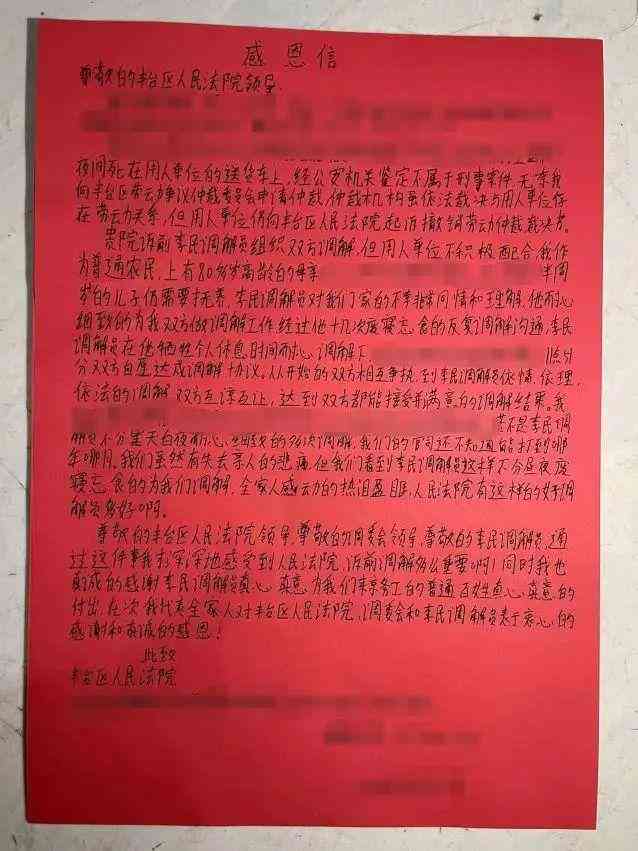 感恩信
尊敬的丰台区人民法院领导.
夜间死在用人单位的送货车上,经公安机关鉴定不属于刑事案件,无奈我
向丰台区劳动争议仲裁委员会申请仲裁,仲裁机构虽依法裁决与用人单位存
在劳动关系,但用人单位仍向丰台区人民法院起诉撤销劳动仲裁裁决书。
贵院诉前李民调解员组织双方调解,但用人单位不积极配合,我作
为普通农民,上有80多岁高龄的母亲 半周
岁的儿子仍需要抚养,李民调解员对我们家的不幸非常同情和理解,他耐心
细致的为我双方做调解工作,经过他十几次废寝忘食的反复调解沟通,李民
调解员在他牺牲个人休息时间耐心调解下 点
分双方自愿达成调解协议。从开始的双方相互争执,到李民调解员依情、依理、
依法的调解,双方互谅互让,达到双方都能接受和满意的调解结果。我
若不是李民调
解员不分星天白夜耐心 的多次调解,我们的官司还不知道能打到哪
年哪月,我们虽然有失去亲人的悲痛,但我们看到李民调解员这样不分昼夜废
寝忘食的为我们调解,全家人感动的热泪盈眶,人民法院有这样的好调
解员真好啊。
尊敬的丰台区人民法院领导,尊敬的调委会领导,尊敬的李民调解员,通
过这件事我深深地感受到人民法院诉前调解多么重要啊!同时我也
真诚的感谢李民调解员真心真意为我们来京务工的普通百姓真心真意的
付出,在次我代表全家人对丰台区人民法院、调委会和李民调解员表示衷心的
感谢和真诚的感恩!
此致
丰台区人民法院